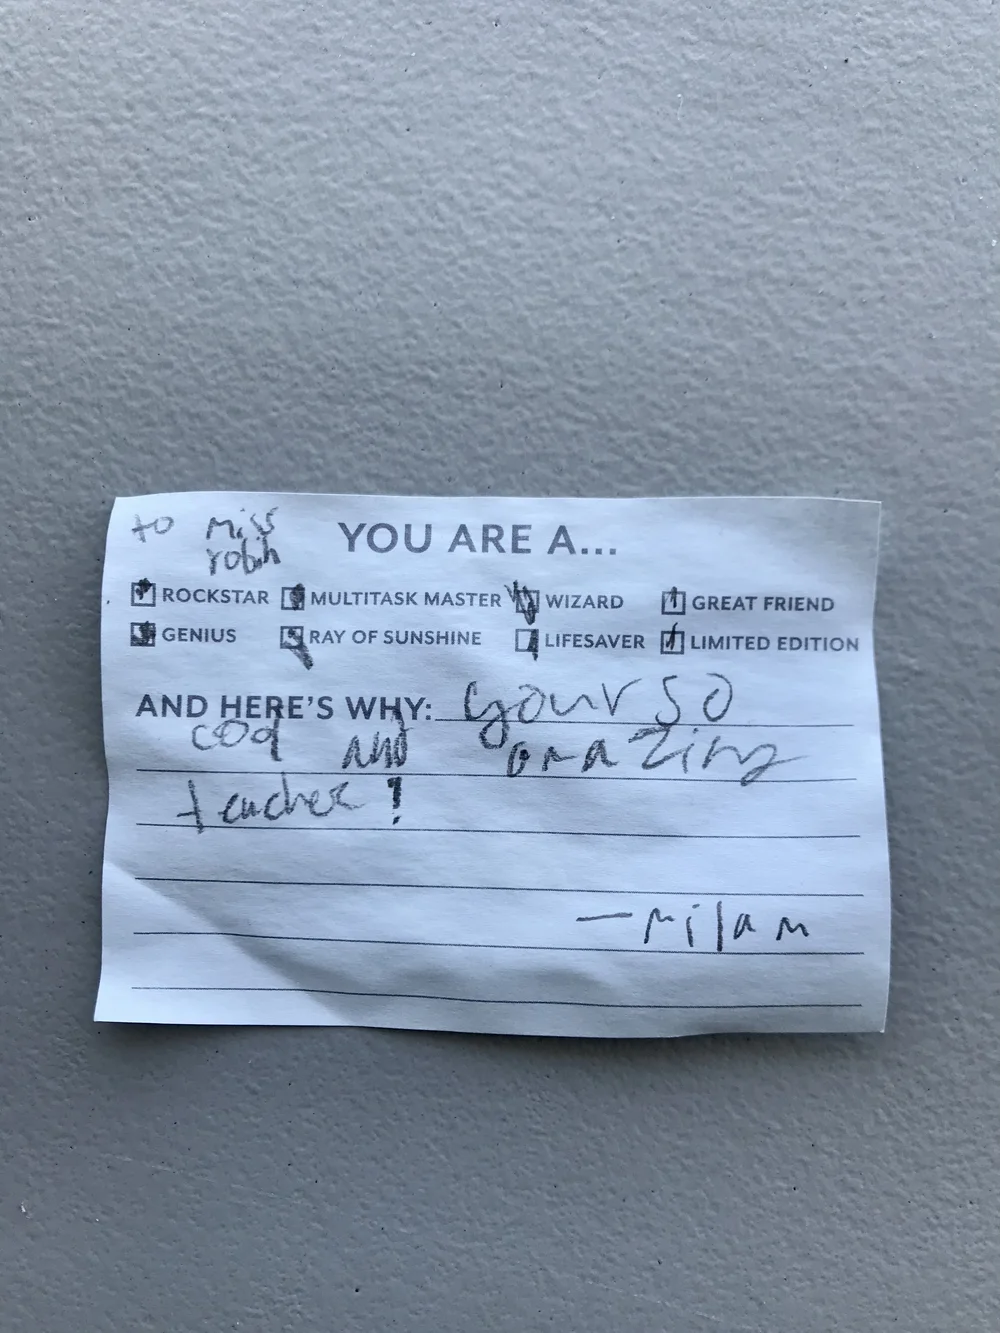 to miss
robin
YOU ARE A...
ROCKSTAR MULTITASK MASTER WIZARD GREAT FRIEND
GENIUS RAY OF SUNSHINE LIFESAVER LIMITED EDITION
AND HERE'S WHY: your so
and amazing
teacher!
— milam